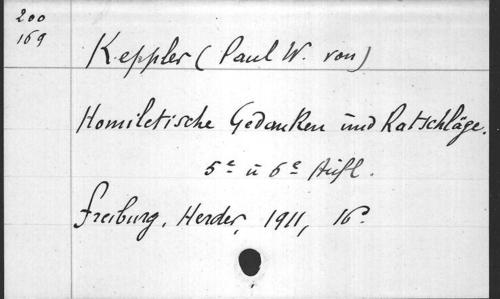 200
169
Keppler (Paul W. von)
Homiletische Gedanken und Ratschläge.
5e u 6e Aufl.
Freiburg, Herder, 1911, 16o